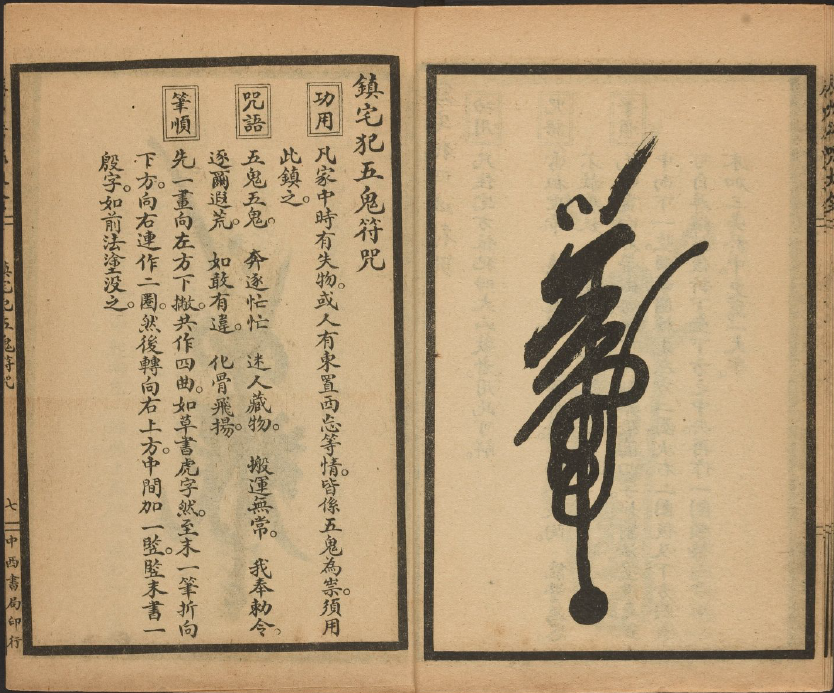 鎮宅犯五鬼符咒
功用
凡家中時有失物。或人有東置西忘等情。皆係五鬼為祟。須用
此鎮之。
咒語
五鬼五鬼。 奔逐忙忙 迷人藏物。 搬運無常。 我奉勅令。
逐爾遐荒。 如敢有違。 化骨飛揚。
筆順
先一畫向左方下撇。共作四曲。如草書虎字然。至末一筆折向
下方。向右連作二圈。然後轉向右上方。中間加一豎。豎末書一
殷字。如前法塗沒之。
鎮宅犯五鬼符咒
七
中西書局印行